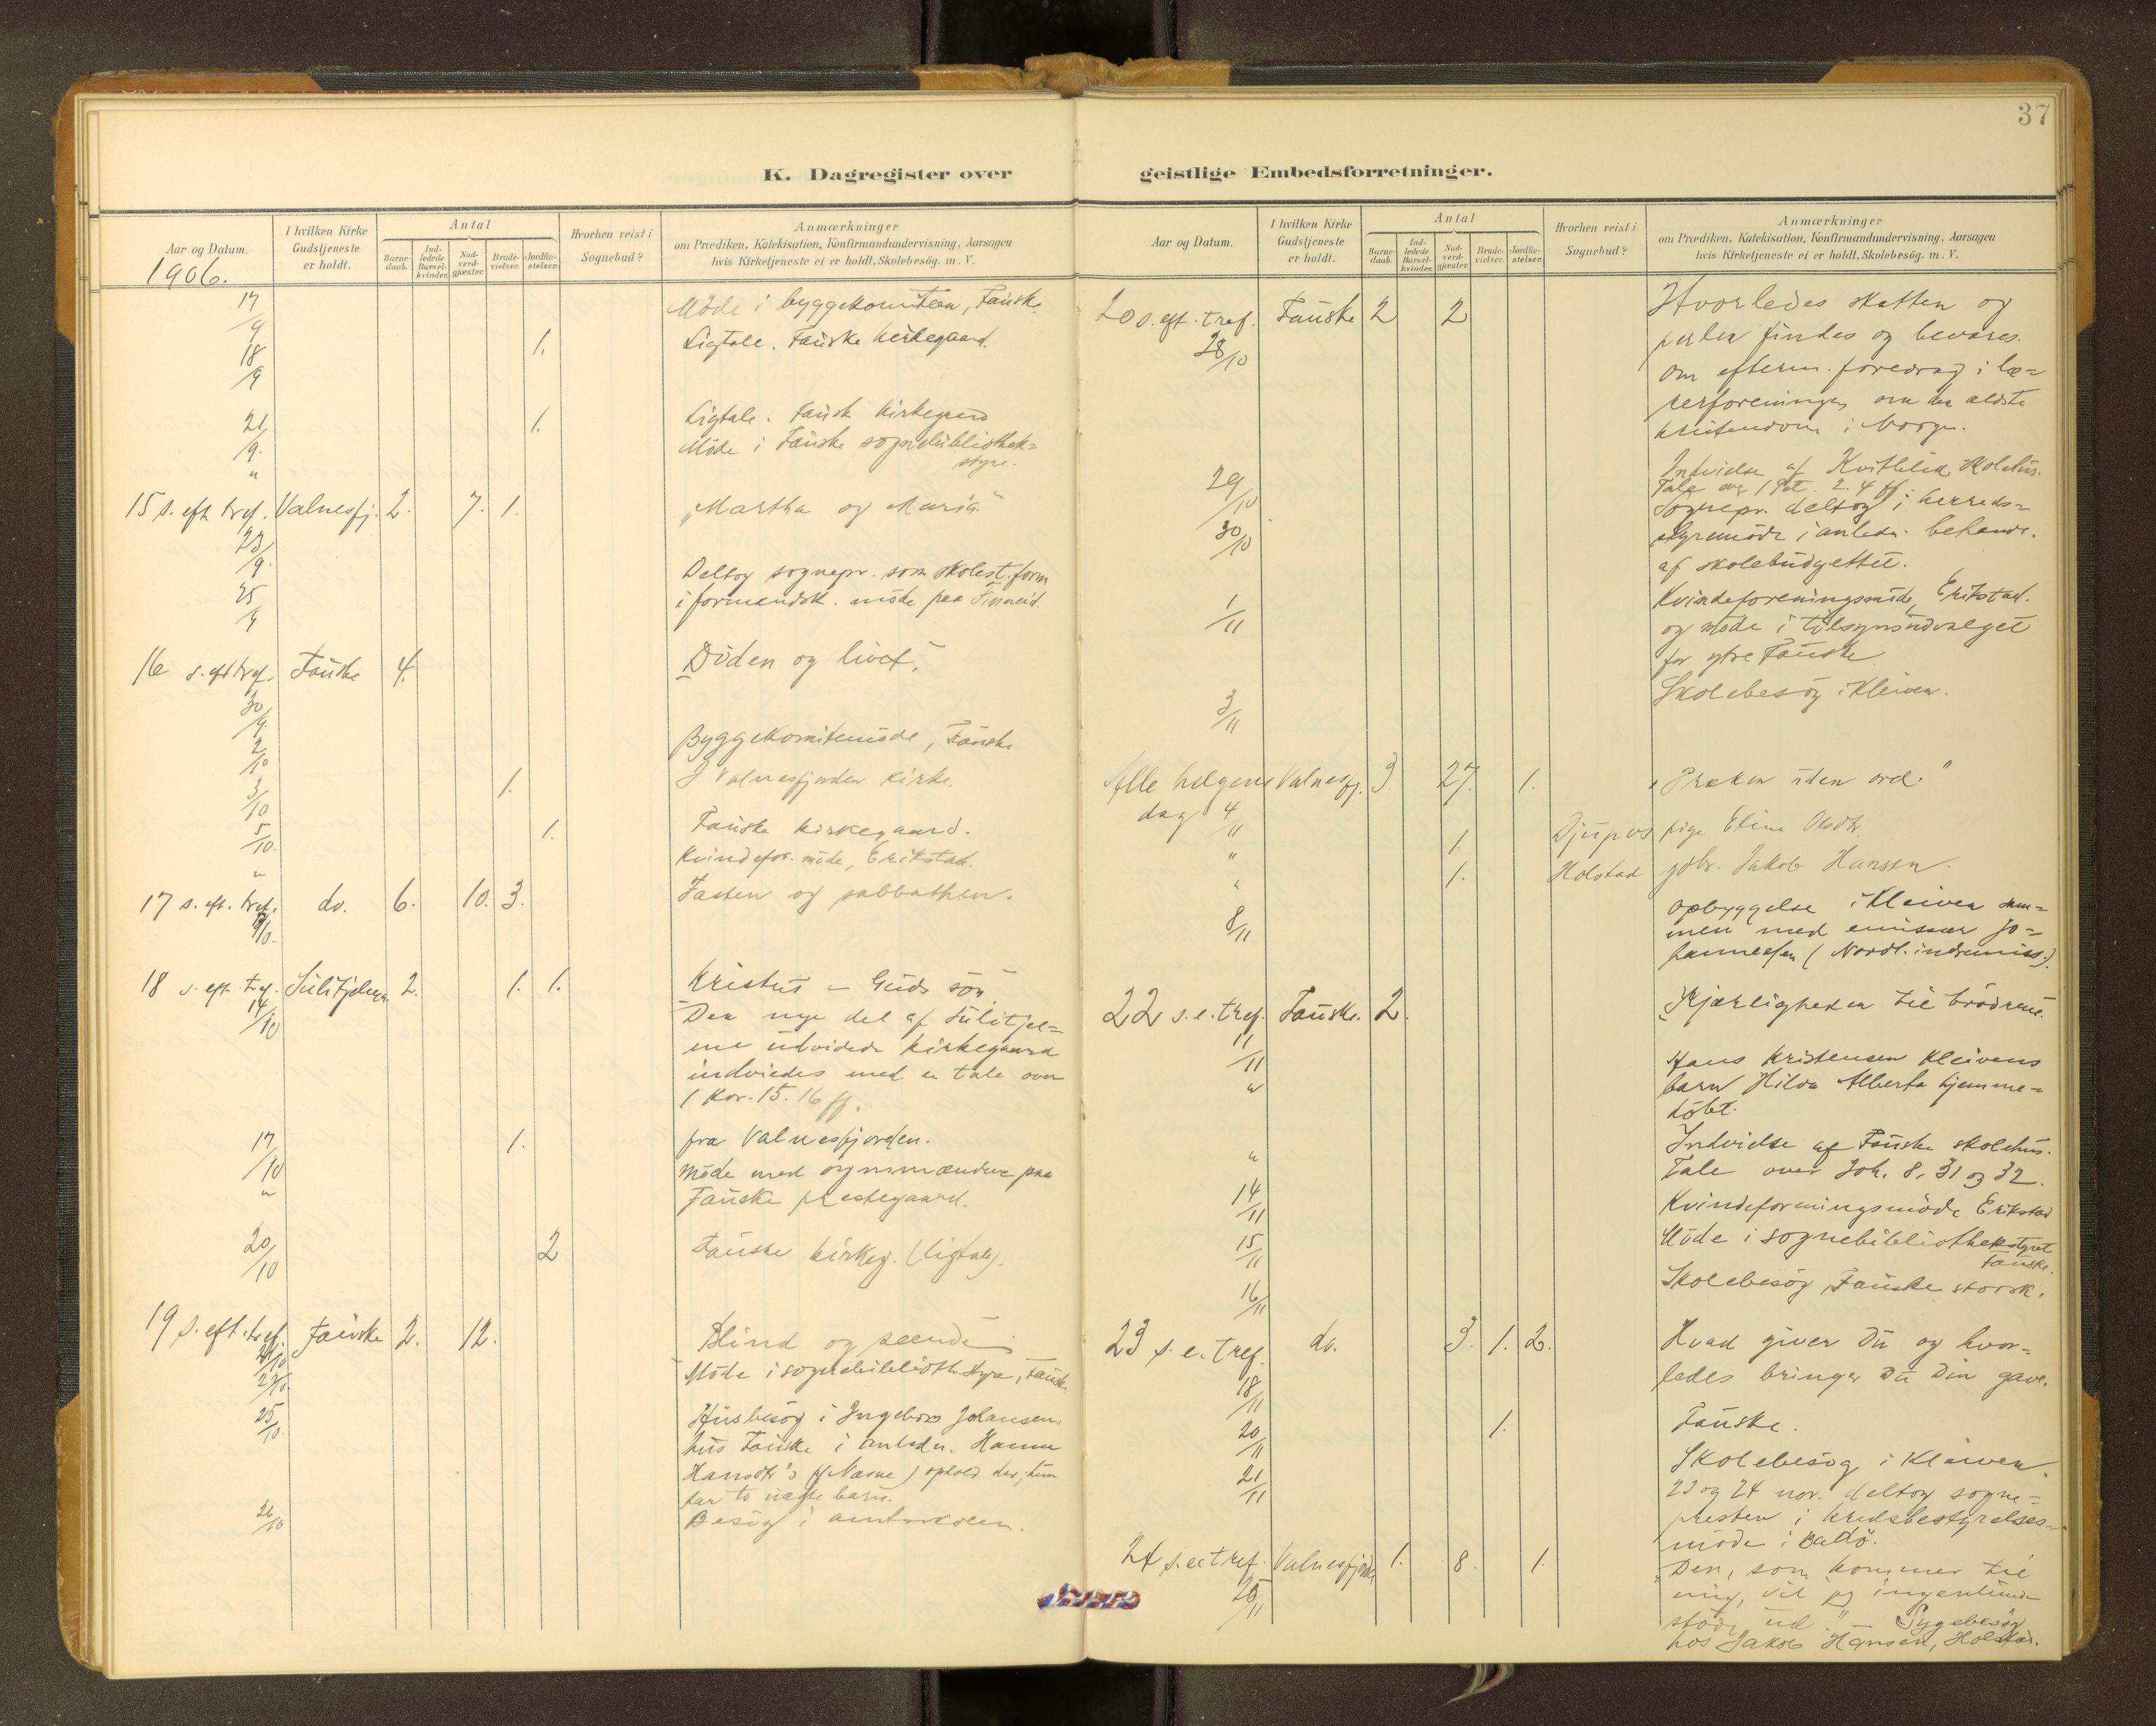 37
K. Dagregister over geistlige Embedsforretninger.
Aar og Datum.
I hvilken Kirke Gudstjeneste er holdt.
Antal
Barnedaab.
Indledede Barselkvinder.
Nadverdgjæster.
Brudevielser.
Jordfæstelser.
Hvorhen reist i Sognebud?
Anmærkninger
om Prædiken, Katekisation, Konfirmandundervisning, Aarsagen
hvis Kirketjeneste ei er holdt, Skolebesög. m. V.
1906.
17/9 Möde i byggekomiteen, Fauske
18/9 1. Ligtale. Fauske kirkegaard.
21/9. 1. Ligtale. Fausk kirkegaard
" Möde i Fauske sognebibliothek=
styre.
15 s. eft tref. Valnesfj. 2. 7. 1. "Martha og Maria"
23/9.
25/9 Deltog sognepr. som skolest. form
i formandsk. möde paa Finneid.
16 s. eft tref. Fauske 4. "Döden og livet".
30/9.
2/10 Byggekomitemöde, Fauske
3/10 1. I Valnesfjorden kirke.
5/10. 1. Fauske kirkegaard.
" Kvindefor. möde, Erikstad.
17 s. eft. tref. do. 6. 10. 3. Fasten og sabbathen.
18 s. eft. tref. Sulitjelma 2. 1. 1. Kristus – Guds sön
14/10 Den nye del af Sulitjel=
me udvidede kirkegaard
indviedes med en tale over
1 Kor. 15. 16 ff.
17/10 1. fra Valnesfjorden.
" Möde med paa
Fauske prestegaard.
20/10 2 Fauske kirkeg. (ligtale).
19 s. eft. tref. Fauske 2. 12. Blind og seende
21/10
Möde i sognebiblioth. styre, Fausk.
25/10. Husbesög i Ingebor Johansens
hus Fauske i anledn. Hanna
Hansdtr's (f Næsne) ophold der; hun
har to uægte barn.
26/10 Besög i amtsskolen.
Aar og Datum.
I hvilken Kirke Gudstjeneste er holdt.
Antal
Barnedaab.
Indledede Barselkvinder.
Nadverdgjæster.
Brudevielser.
Jordfæstelser.
Hvorhen reist i Sognebud?
Anmærkninger
om Prædiken, Katekisation, Konfirmandundervisning, Aarsagen
hvis Kirketjeneste ei er holdt, Skolebesög. m. V.
20 s. eft. tref. Fauske 2 2 Hvorledes skatten og
28/10 perlen findes og bevares.
Om efterm. foredrag i læ=
rerforeningen om den ældste
kristendom i Norge.
29/10 Indvielse af Kvitblik skolehus.
Tale over 1 Pet. 2. 4 ff
30/10 Sognepr. deltog i herreds=
styremöde i anledn. behandl.
af skolebudgettet.
1/11 Kvindeforeningsmöde, Erikstad.
og möde i tilsynsudvalget
for ytre Fauske
3/11 Skolebesög i Kleiven.
Alle helgens Valnesfj. 3. 27. 1. "Præken uden ord."
dag 4/11
" 1. Djupvs pige Eline Olsdtr.
" 1. Holstad gbr. Jakob Hansen.
8/11 Opbyggelse i Kleiven sam=
men med emissær Jo=
hannessen (Nordl. indremiss.).
22 s. e. tref. Fauske. 2. "Kjærligheden til brödrene."
11/11
" Hans Kristensen Kleivens
barn Hilda Alberta hjemme=
döbt.
" Indvielse af Fauske skolehus.
Tale over Joh. 8, 31 og 32.
14/11 Kvindeforeningsmöde Erikstad
15/11 Möde i sognebibliothekstyret
Fauske.
16/11 Skolebesög Fauske storsk.
23 s. e. tref. do. 3. 1. 2. Hvad giver Du og hvor=
18/11 ledes bringer Du Din gave.
20/11 1. Fauske.
21/11 Skolebesög i Kleiven.
23 og 24 nov. deltog sogne=
presten i kredsbestyrelses=
möde i Bodö.
24 s. e. tref. Valnesfjord 1. 8. 1. "Den, som kommer til
25/11 mig, vil jeg ingenlunde
stöde ud" Sygebesög
hos Jakob Hansen, Holstad.